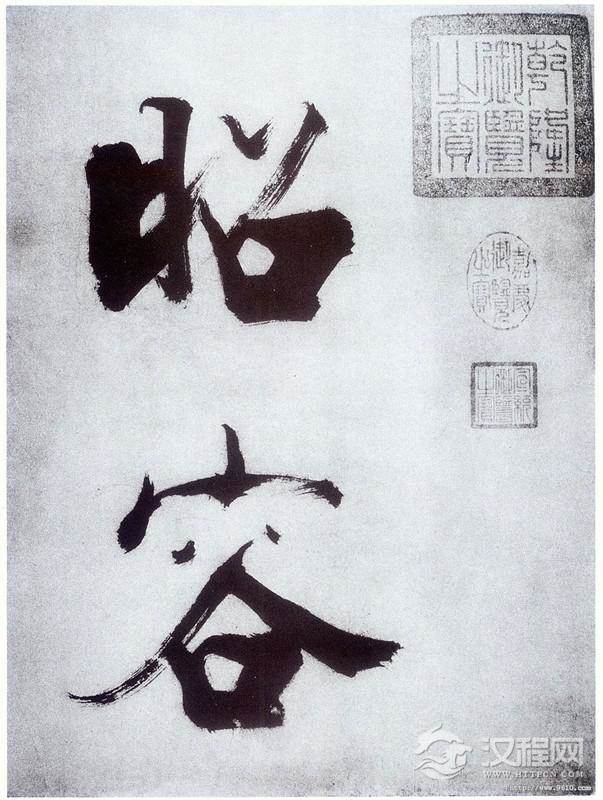 昭容
乾隆御覽之寶
嘉慶御覽之寶
宣統御覽之寶
汉程网
WWW.HTTPCN.COM
http://www.9610.com